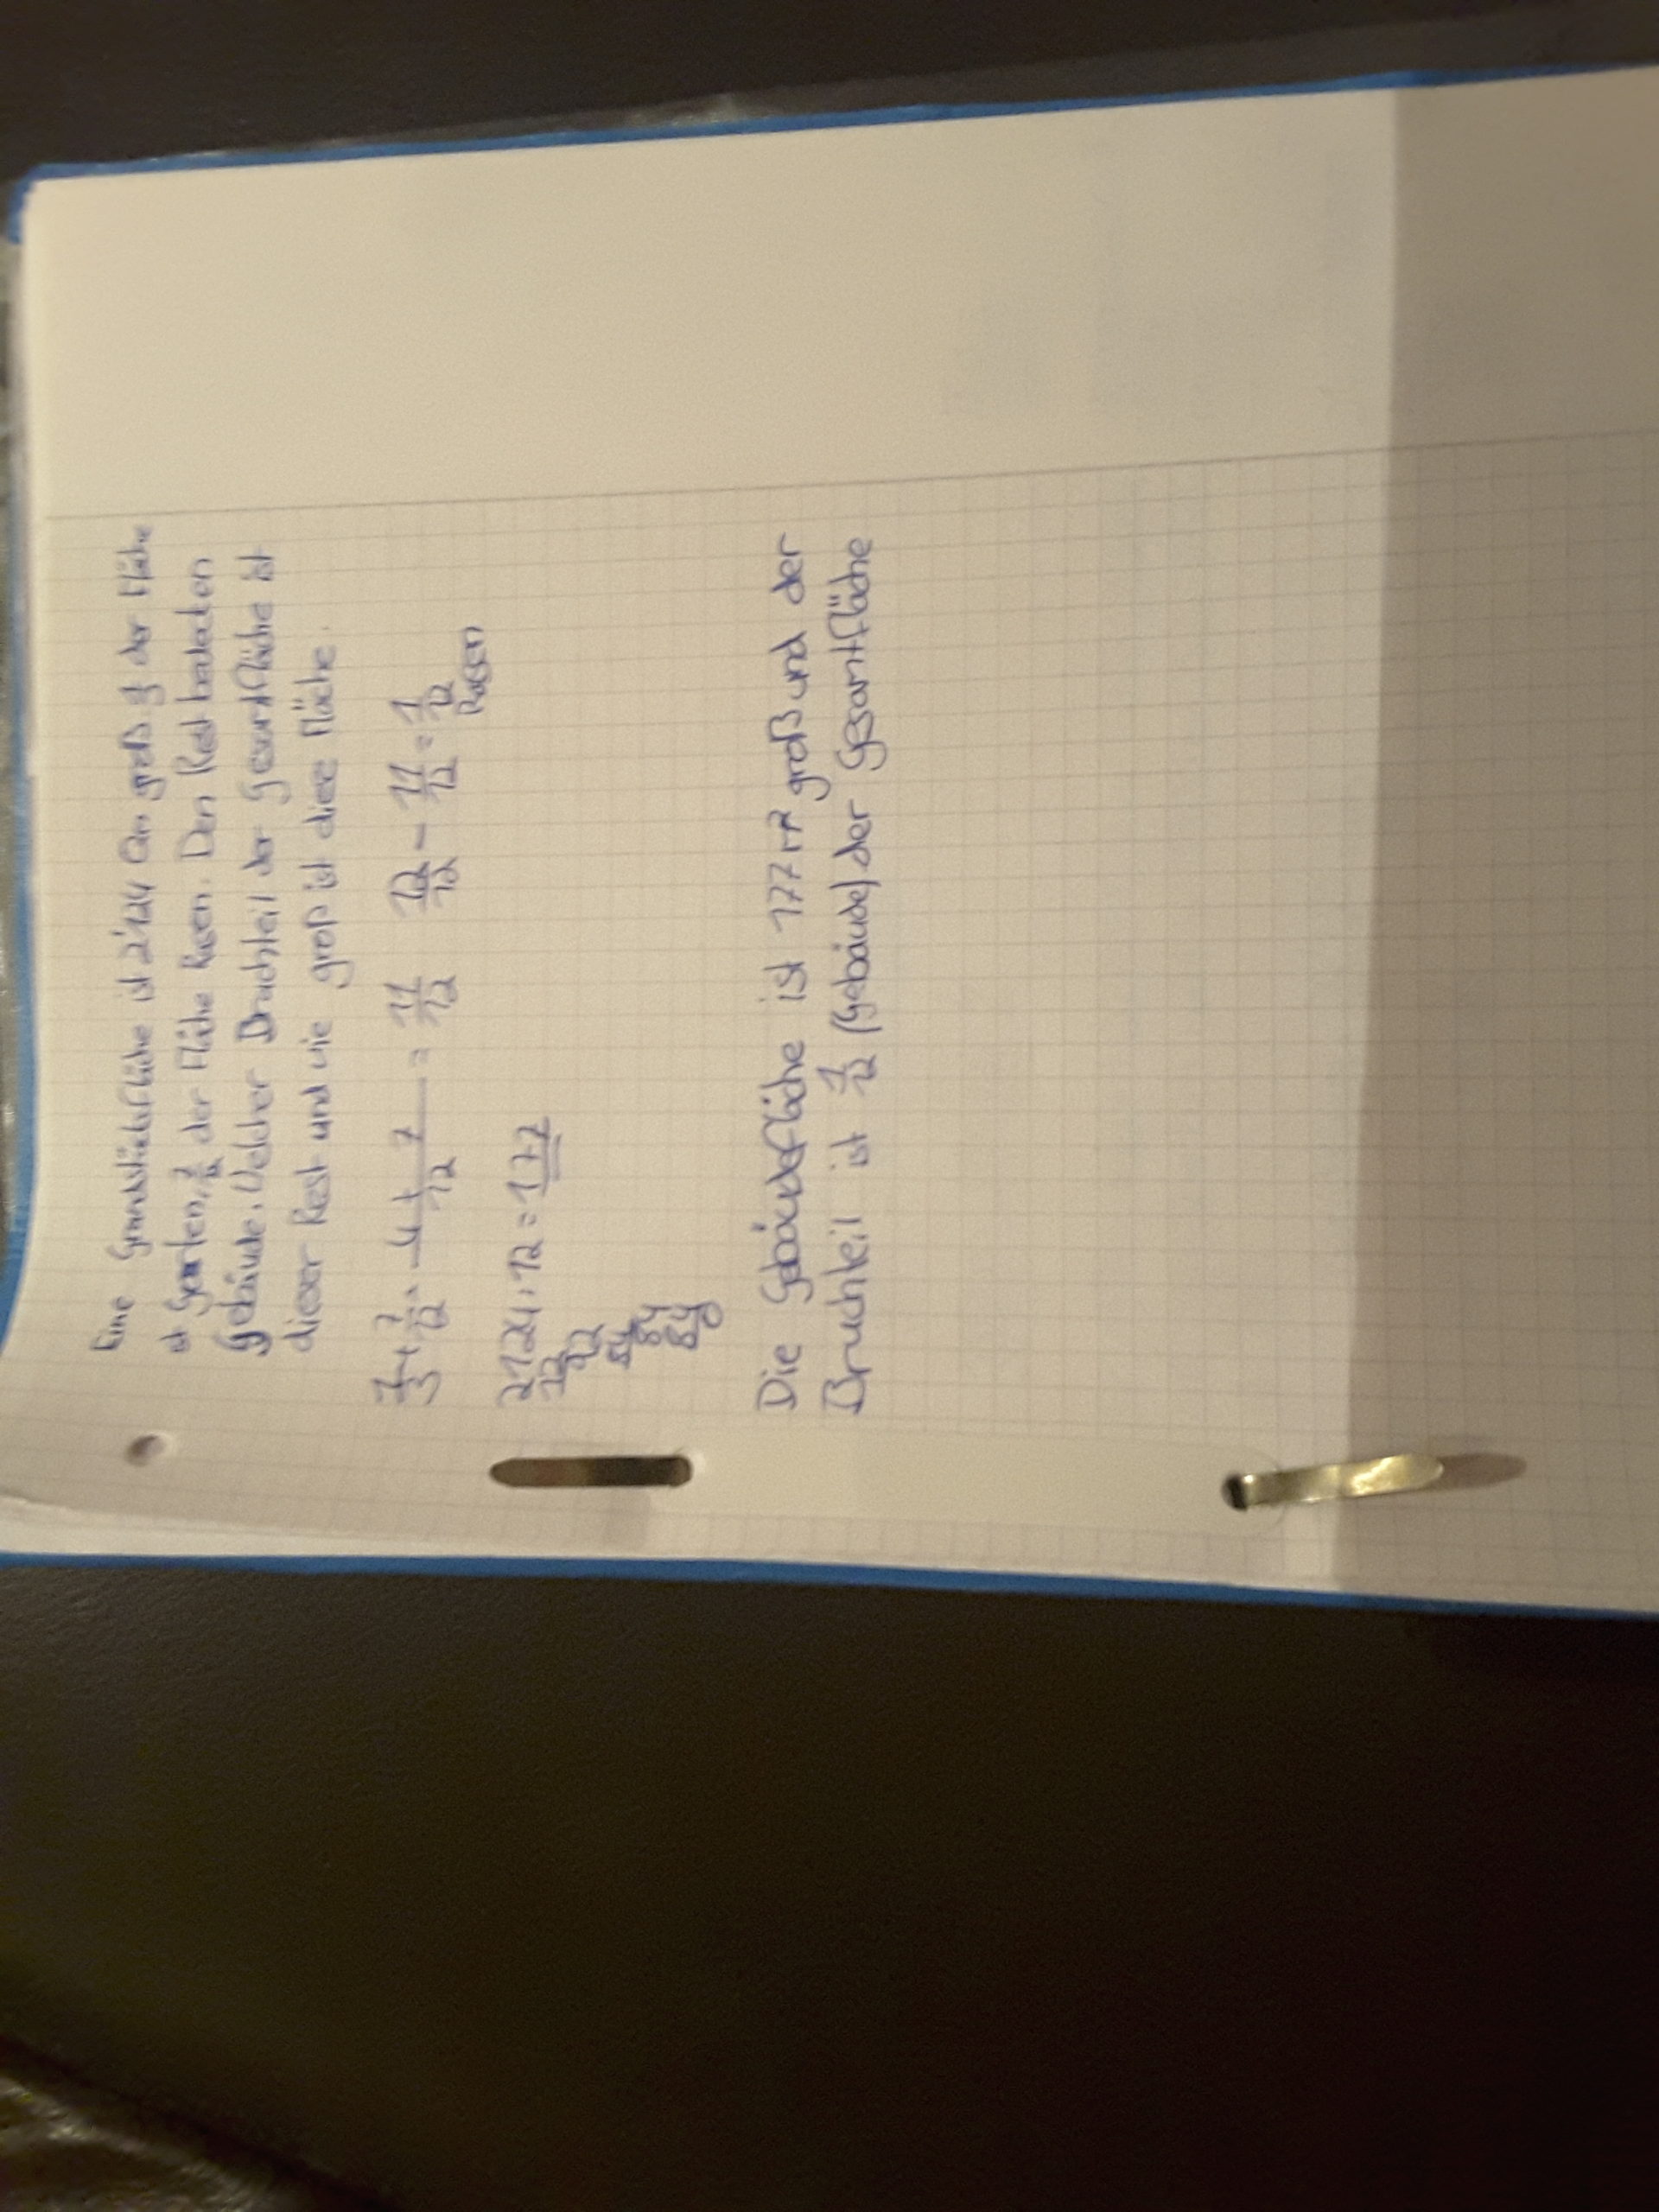 Eine Grundstücksfläche ist 2'124 Qm groß 1/3 der Fläche
ist Garten, 7/12 der Fläche Rasen. Den Rest bedecken
Gebäude. Welcher Bruchteil der Gesamtfläche ist
dieser Rest und wie groß ist diese Fläche.
1/3 + 7/12 = 4 + 7/12 = 11/12 12/12 - 11/12 = 1/12
Rasen
2124 : 12 = 177
12
92
84
84
84
0
Die Gebäudefläche ist 177 m² groß und der
Bruchteil ist 1/12 (Gebäude) der Gesamtfläche